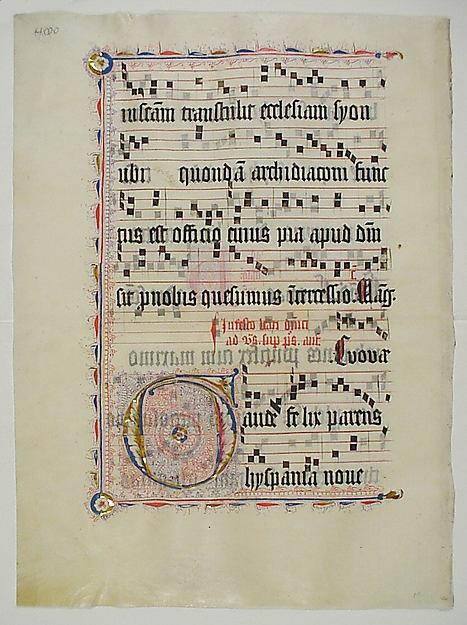 4000
iustam transtulit ecclesiam syon
ubi quondā archidiaconi func
tus est officio cuius pia apud dm̄
sit p nobis quesumus ītercessio. Mag̃.
In festo
ad v̄s. sup ps. ant.
Evovae
Gaude felix parens
hyspania noue